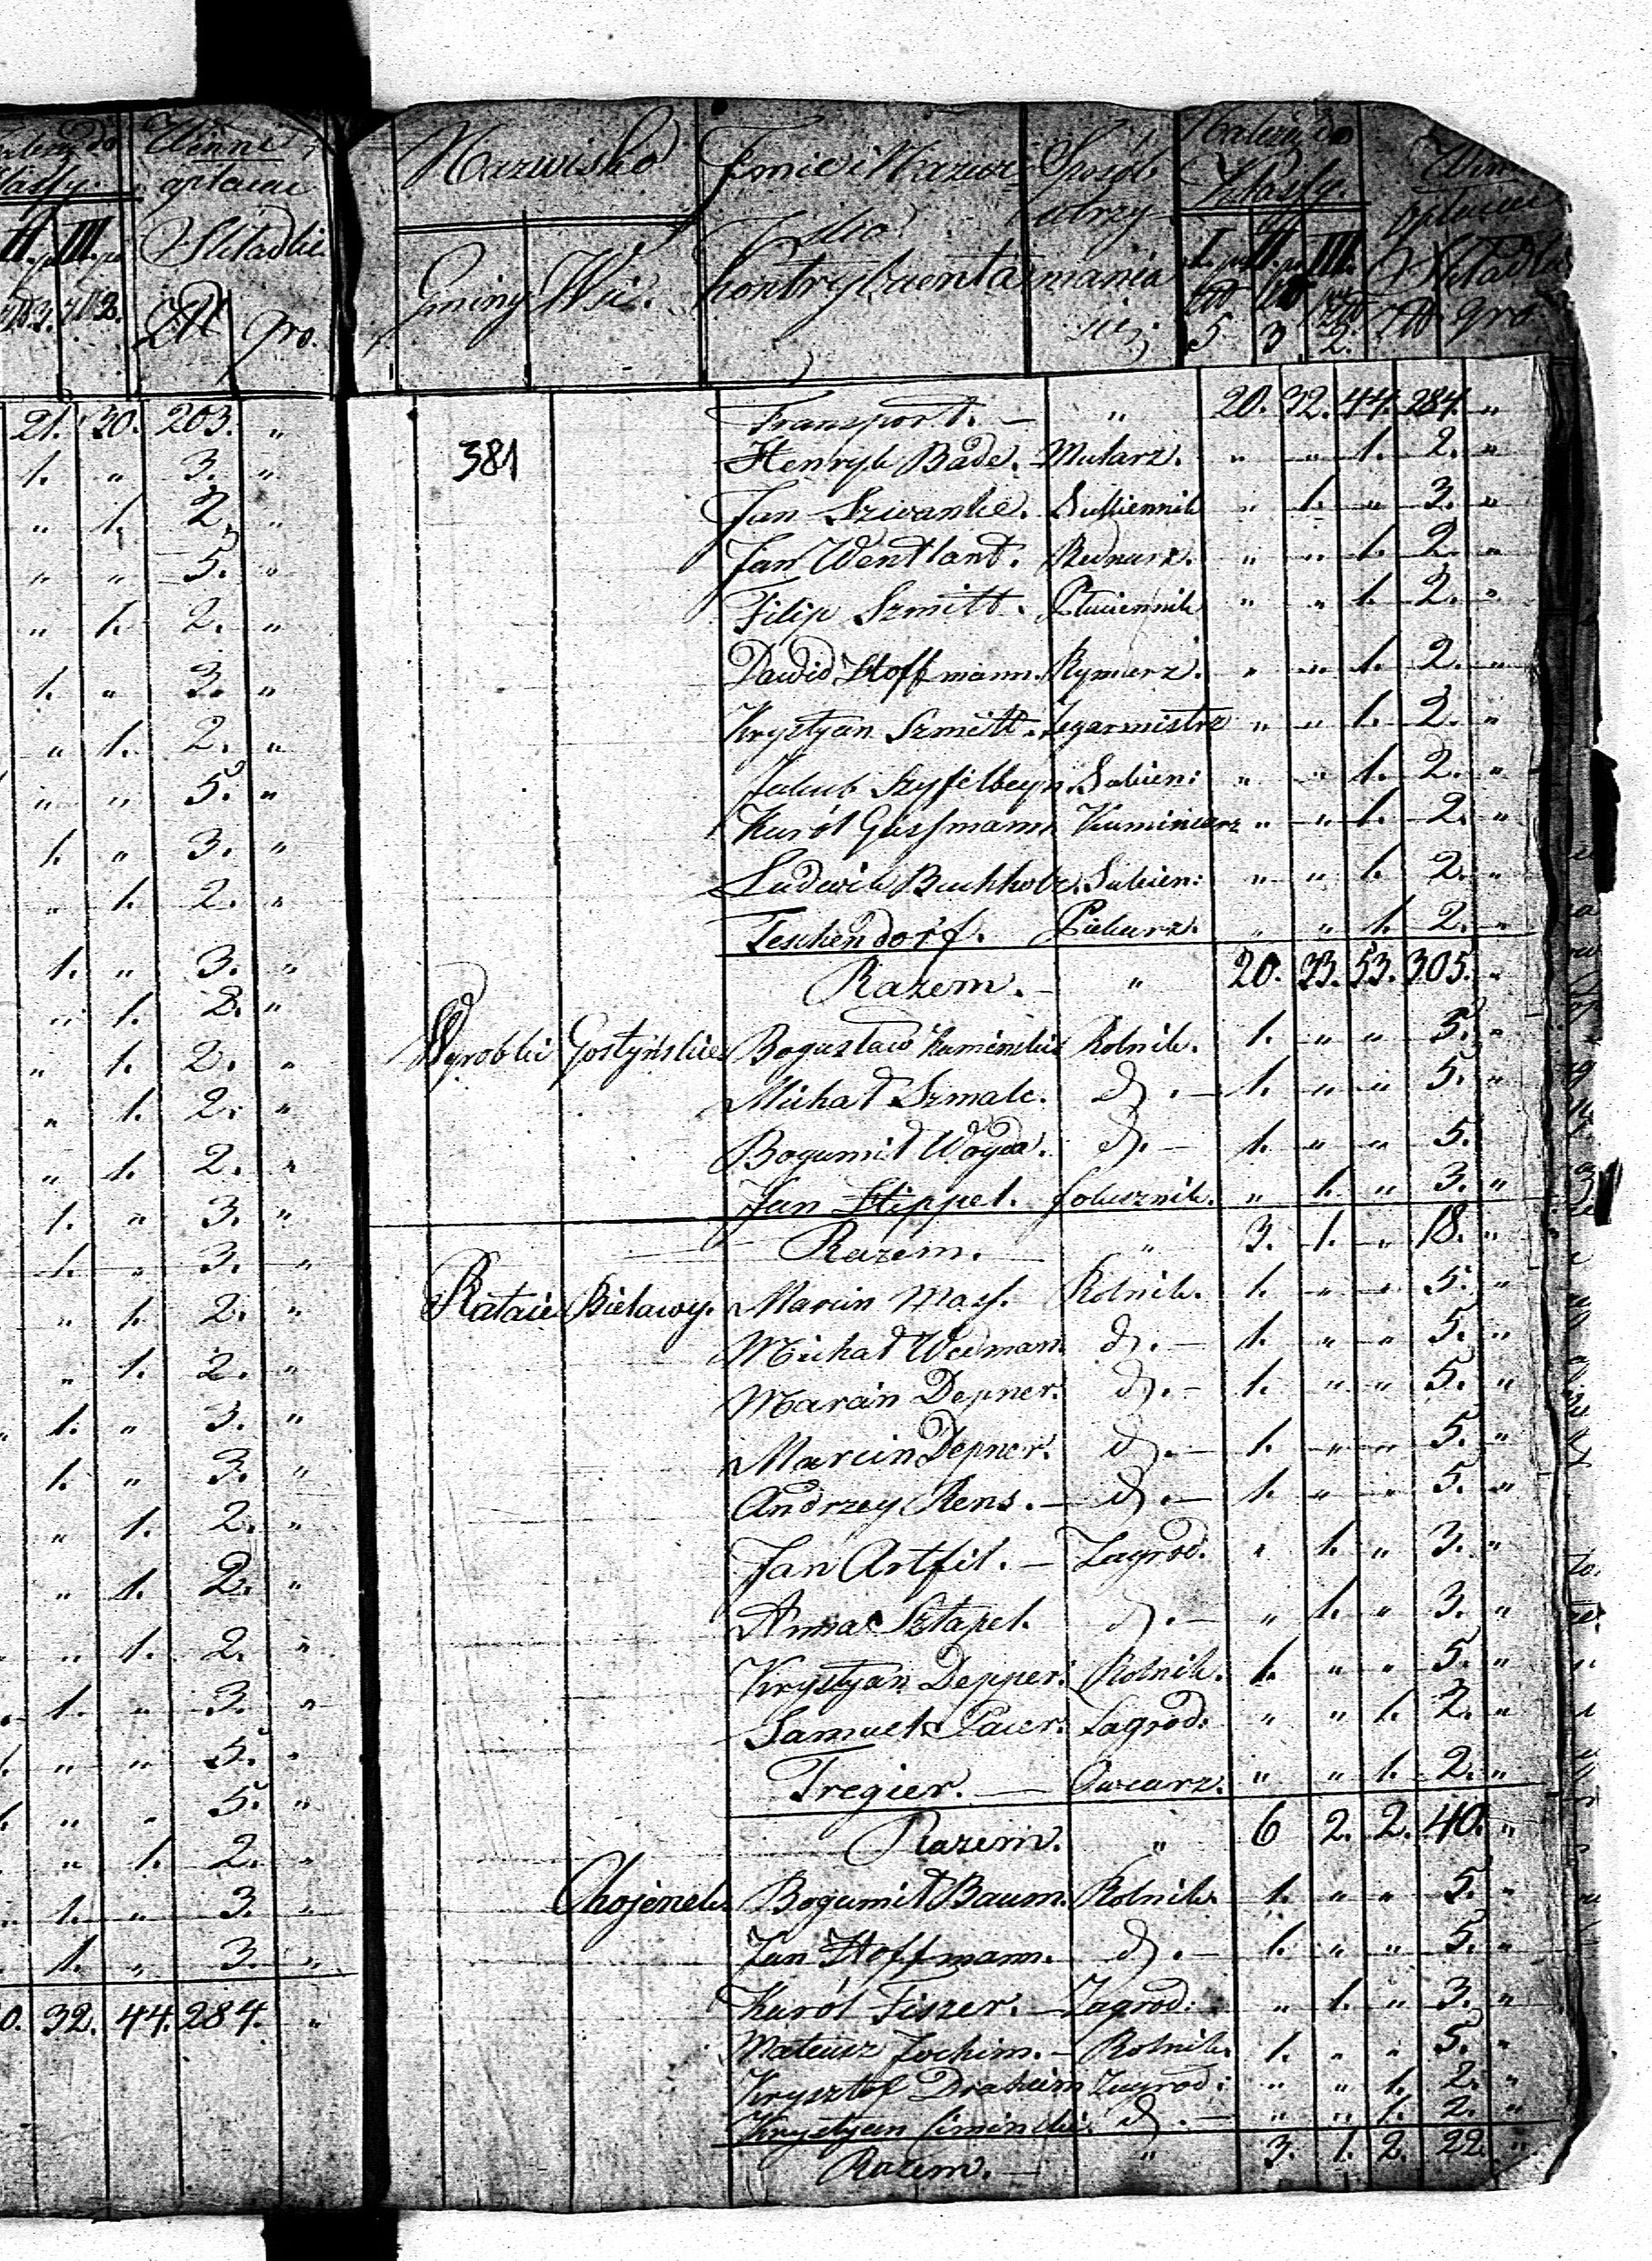 Należy do Winne
Klassy. opłacać
II. p III. p Składkę
Złł gro.
21. 30. 203. "
1. " 3. "
" 1. 2. "
" " 5. "
" 1. 2. "
1. " 3. "
" 1. 2. "
" " 5. "
1. " 3. "
" 1. 2. "
1. " 3. "
" 1. 2. "
" 1. 2. "
" 1. 2. "
" 1. 2. "
1. " 3. "
1. " 3. "
" 1. 2. "
" 1. 2. "
1. " 3. "
1. " 3. "
" 1. 2. "
" 1. 2. "
" 1. 2. "
1. " 3. "
" " 5. "
" " 5. "
" 1. 2. "
1. " 3. "
1. " 3. "
0. 32. 44. 284. "
Nazwisko Jmie i Nazwi- Sposób Należy do Winne
sko utrzy- Klassy. opłacać
Gminy Wsi. kontrybuenta mania I. p II. p III. Składkę
się 5 3 2. Złł gro.
Transport. — " 20. 32. 44. 284. "
381 Henryk Bade. Mularz. " " 1. 2. "
Jan Szwanke. Sukiennik " 1. " 3. "
Jan Wentlant. Bednarz. " " 1. 2. "
Filip Szmitt. Płuciennik " " 1. 2. "
Dawid Hoffmann. Rymarz. " " 1. 2. "
Krystyan Szmitt. Zegarmistrz " " 1. 2. "
Jakub Szyfelbeyn. Sukien: " " 1. 2. "
Karól Gussmann Kaminiarz " " 1. 2. "
Ludwik Buchholz. Sukien: " " 1. 2. "
Teschendorf. Piekarz. " " 1. 2. "
Razem. — " 20. 33. 53. 305. "
Wyrobki Gostyńskie Bogusław Kaminski Rolnik. 1. " " 5. "
Michał Szmalc. d. — 1. " " 5. "
Bogumił Woyda. d. — 1. " " 5.
Jan Hippel. Folusznik. " 1. " 3. "
Razem. " 3. 1. " 18. "
Rataie Bielawy. Marcin Mass. Rolnik. 1. " " 5. "
Michał Wedmann d. — 1. " " 5. "
Marcin Depner. d. — 1. " " 5. "
Marcin Depner. d. — 1. " " 5. "
Andrzey Rens. — d. — 1. " " 5. "
Jan Artfil. — Zagrod. " 1. " 3. "
Anna Sztapel. d. — " 1. " 3. "
Krystyan Depper. Rolnik. 1. " " 5. "
Samuel Pacer. Zagrod: " " 1. 2. "
Tregier. — Owczarz. " " 1. 2. "
Razem. " 6 2. 2. 40. "
Chojenek Bogumił Baum. Rolnik. 1. " " 5. "
Jan Hoffmann. d. — 1. " " 5. "
Karól Fiszer. — Zagrod: " 1. " 3. "
Mateusz Jochim. — Rolnik. 1. " " 5. "
Krysztof Draheim Zagrod: " " 1. 2. "
Krystyan Ciminski. d. — " " 1. 2. "
Razem. — " 3. 1. 2. 22. "